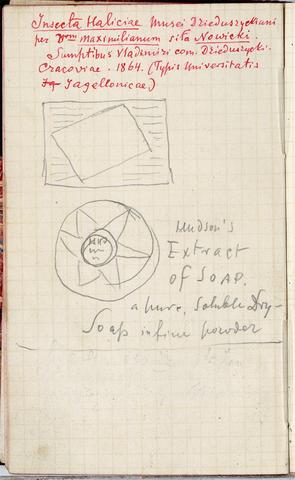 Insecta Haliciae Musei Dzieduszyckiani
per Drem Maximilianum siła Nowicki.
Sumptibus Vladimiri com. Dzieduszycki.
Cracoviae. 1864. (Typis Universitatis
Jagellonicae.)
Hudson's
Extract
of Soap.
a pure, soluble Dry-
Soap in fine powder